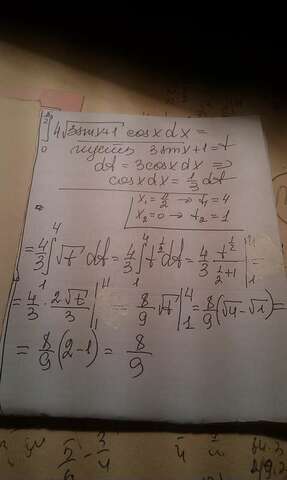 ∫₀^{π/2} 4√(3sinx+1) cosxdx =
пусть 3sinx+1=t
dt = 3cosxdx ⇒
cosxdx = 1/3 dt
x₁ = π/2 → t₁ = 4
x₂ = 0 → t₂ = 1
= 4/3 ∫₁⁴ √t dt = 4/3 ∫₁⁴ t^{1/2} dt = 4/3 t^{1/2}/(1/2+1) |₁⁴ =
= 4/3 · 2√t/3 |₁⁴ = 8/9 √t |₁⁴ = 8/9 (√4 - √1) =
= 8/9 (2-1) = 8/9
5/6 - 3/4